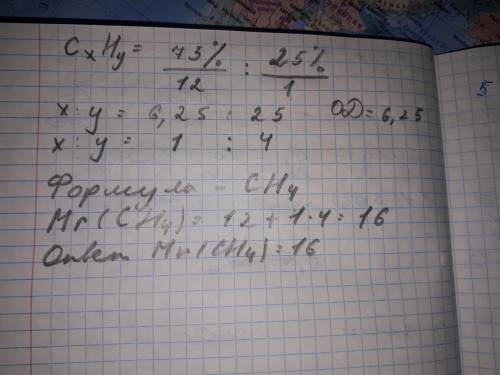 CxHy = 73% / 12 : 25% / 1
x : y = 6,25 : 25 ОД = 6,25
x : y = 1 : 4
Формула - CH4
Mr(CH4) = 12 + 1·4 = 16
Ответ Mr(CH4) = 16
5